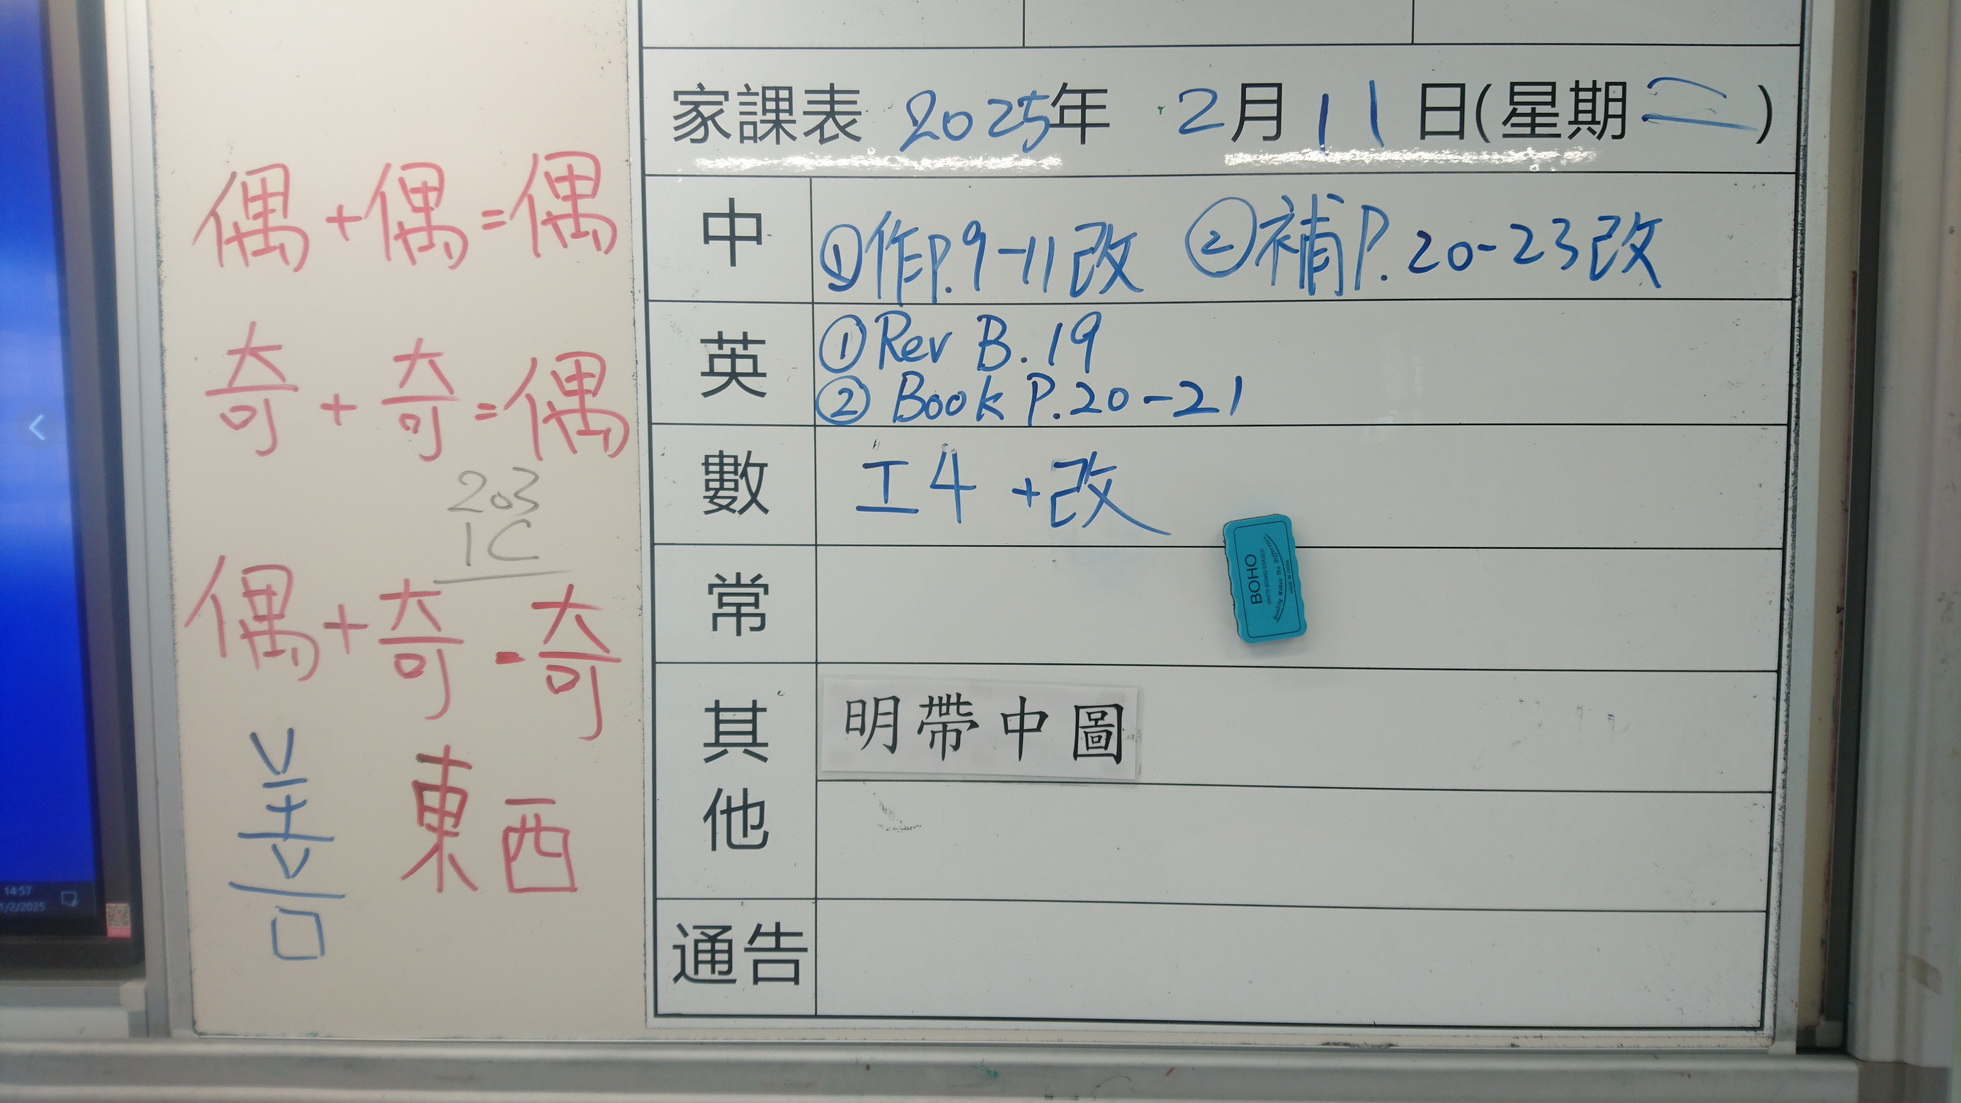 偶+偶=偶
奇+奇=偶
203
1C
偶+奇=奇
善 東西
14:57
1/2/2025
家課表 2025年 2月11日(星期二)
中 ①作P.9-11改 ②補P.20-23改
英 ①Rev B.19
②Book P.20-21
數 工4 +改
常
BOHO
其他 明帶中圖
通告